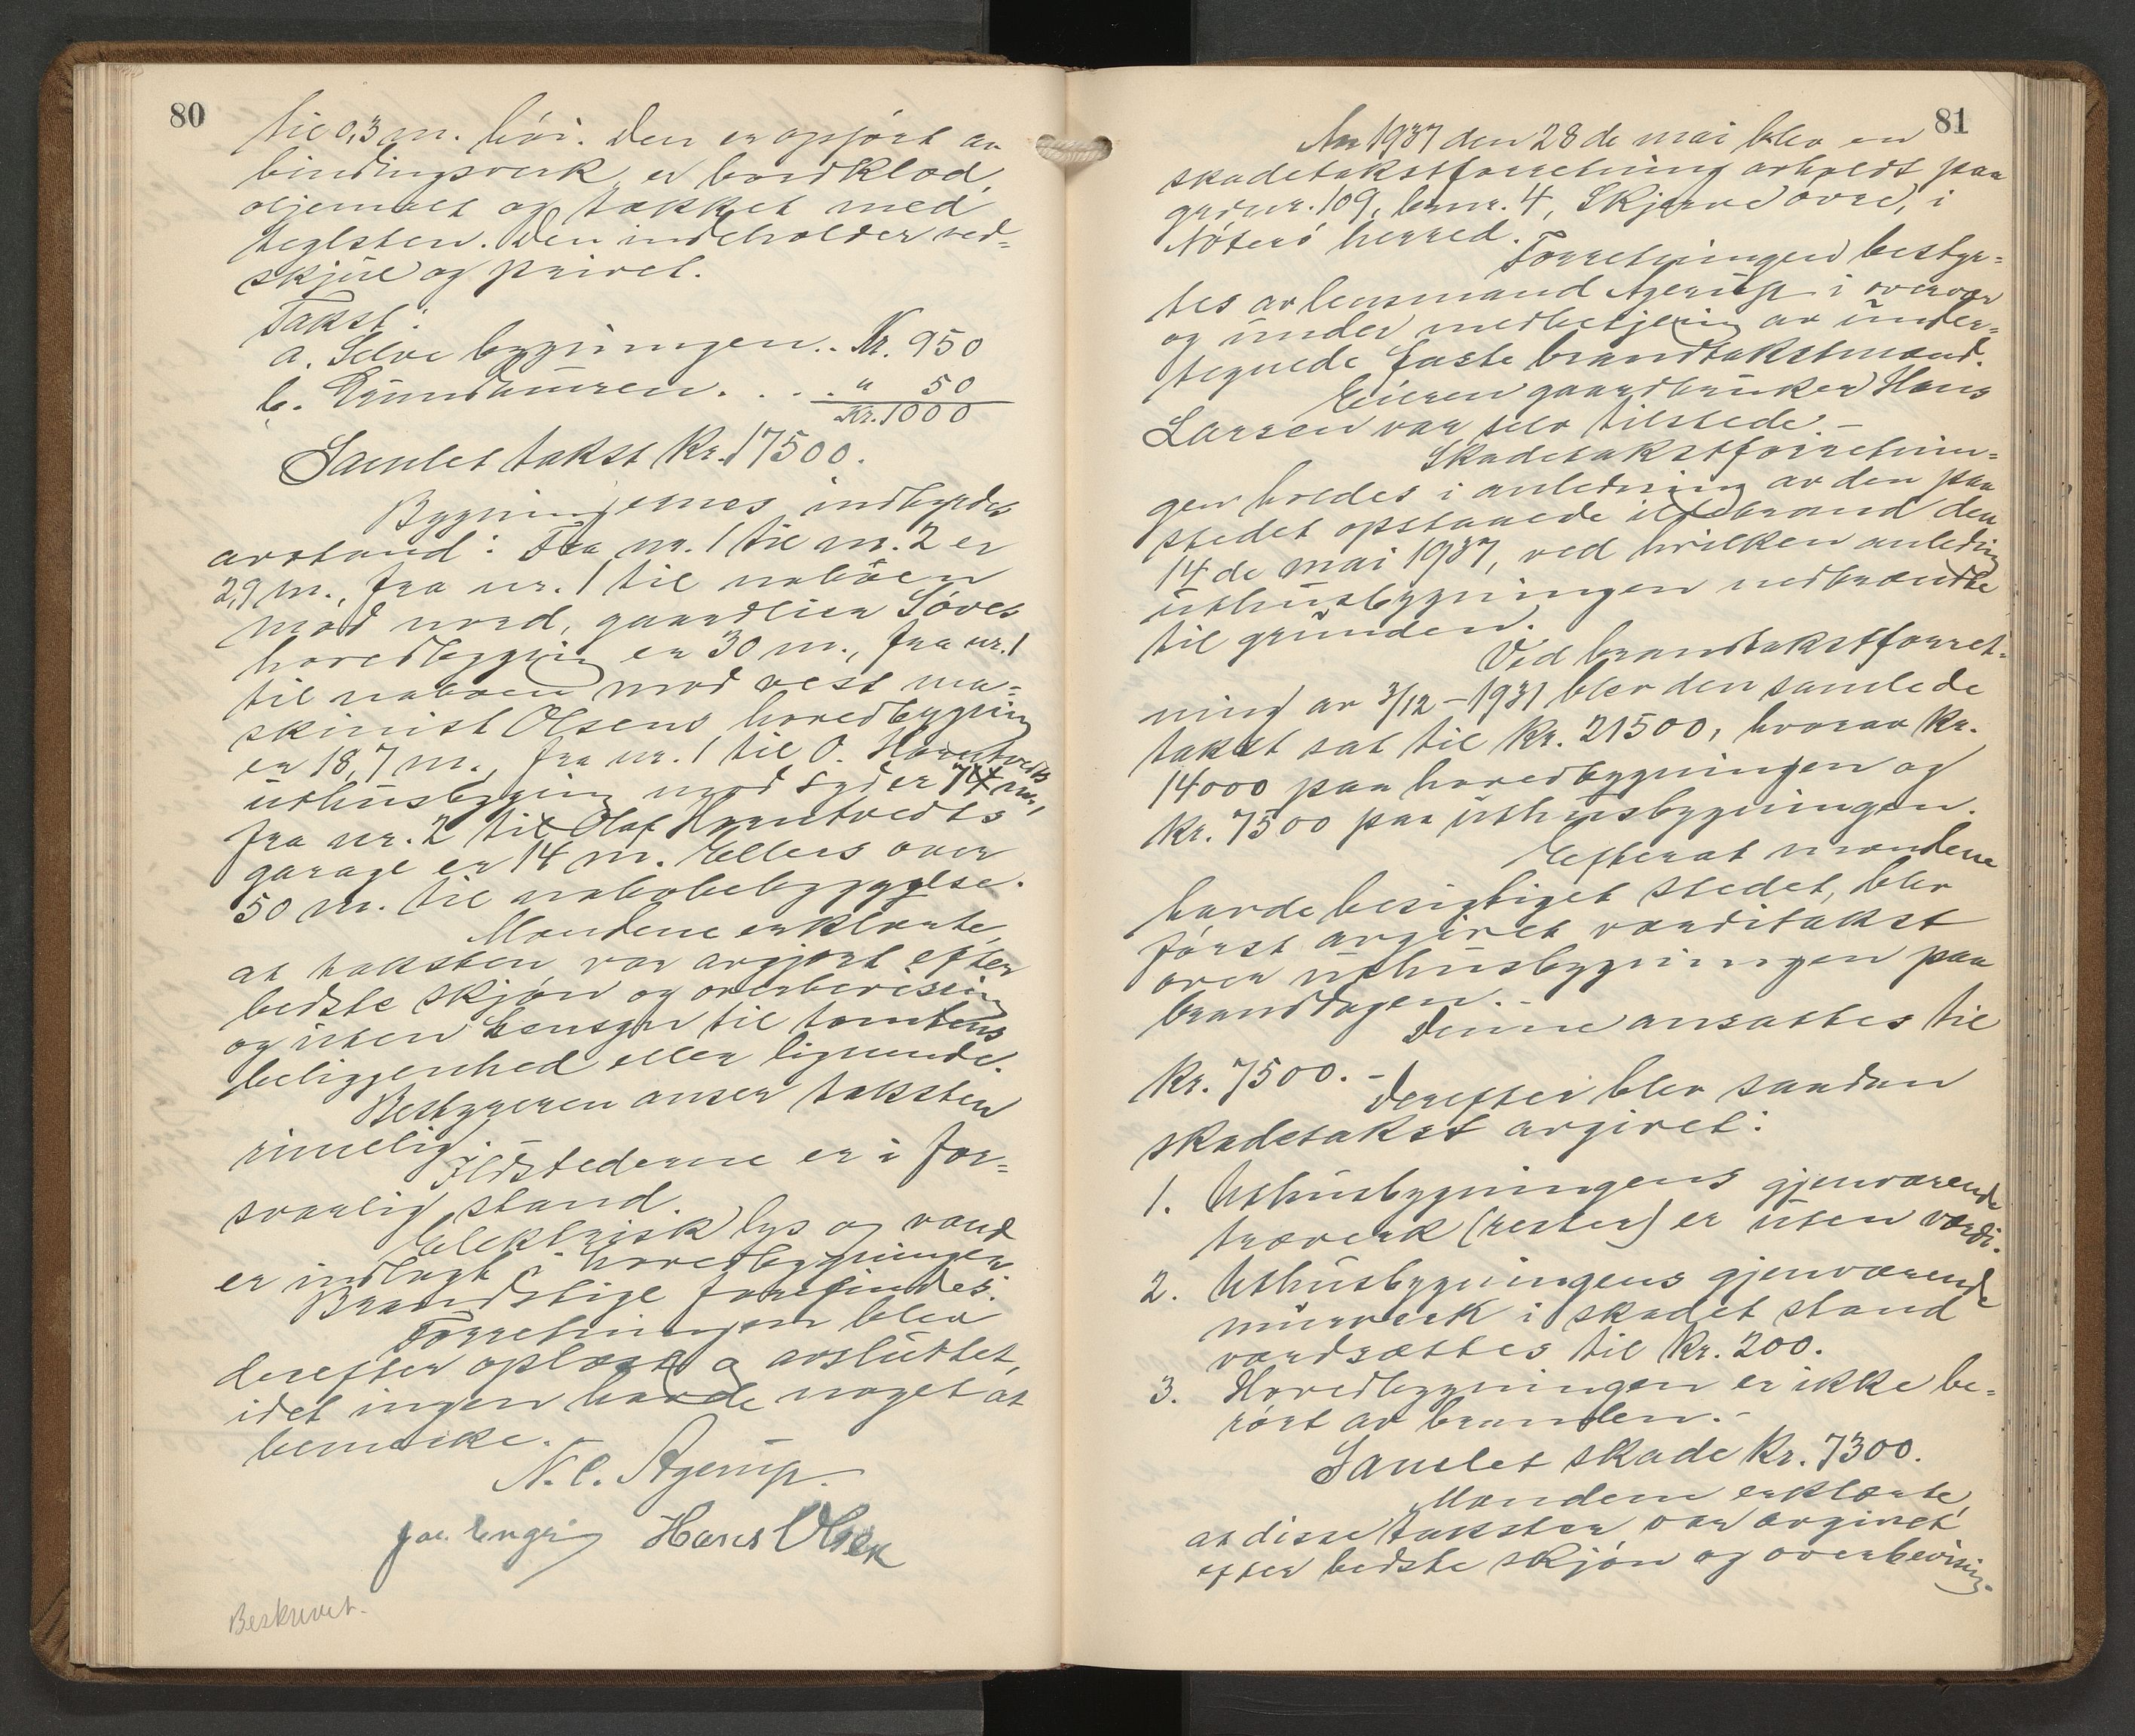 80
til 0,3 m. høi. Den er opført av
bindingsverk, er bordklæd,
oljemalt og tækket med
teglsten. Den indeholder ved-
skjul og privet.
Takst:
a. Selve bygningen.. Kr. 950
b. Grundmuren. . . . " 50
Kr. 1000
Samlet takst Kr. 17500.
Bygningernes indbyrdes
avstand: Fra nr. 1 til nr. 2 er
2,9 m., fra nr. 1 til naboen
mod nord, gaardeier Søves
hovedbygning er 30 m., fra nr. 1
til naboen mod vest ma-
skinist Olsens hovedbygning
er 18,7 m., fra nr. 1 til O. Horntvedts
uthusbygning mod syd er 74 m.,
fra nr. 2 til Olaf Horntvedts
garage er 14 m. Ellers over
50 m. til nabobebyggelse.
Mændene erklærte,
at taksten var avgjort efter
bedste skjøn og overbevisning
og uten hensyn til tomtens
beliggenhed eller lignende.
Bestyreren anser taksten
rimelig.
Ildstederne er i for-
svarlig stand.
Elektrisk lys og vand
er indlagt i hovedbygningen.
Brandstige forefindes.
Forretningen blev
derefter oplæst og avsluttet,
idet ingen havde noget at
bemerke.
N. C. Agerup
Joh. Enger Hans Olsen
Beskrevet.
81
Aar 1937 den 28de mai blev en
skadetakstforretning avholdt paa
gardnr. 109, brnr. 4, Skjerve øvre, i
Nøterø herred.
Forretningen bestyr-
tes av lensmand Agerup i overvær
og under medbetjening av under-
tegnede faste brandtakstmænd.
Eieren gaardbruker Hans
Larsen var selv tilstede. -
Skadetakstforretnin-
gen holdes i anledning av den paa
stedet opstaaede ildebrand den
14de mai 1937, ved hvilken anledning
uthusbygningen nedbrændte
til grunden.
Ved brandtakstforret-
ning av 3/12-1931 blev den samlede
takst sat til Kr. 21500, hvorav Kr.
14000 paa hovedbygningen og
Kr. 7500 paa uthusbygningen.
Efterat mændene
havde besigtiget stedet, blev
først avgivet værditakst
over uthusbygningen paa
branddagen. -
Denne ansattes til
Kr. 7500. -
Derefter blev saadan
skadetakst avgivet:
1. Uthusbygningens gjenværende
træverk (rester) er uten værdi.
2. Uthusbygningens gjenværende
murverk i skadet stand
værdsættes til Kr. 200.
3. Hovedbygningen er ikke be-
rørt av branden. -
Samlet skade Kr. 7300.
Mændene erklærte,
at disse takster var avgivet
efter bedste skjøn og overbevisning